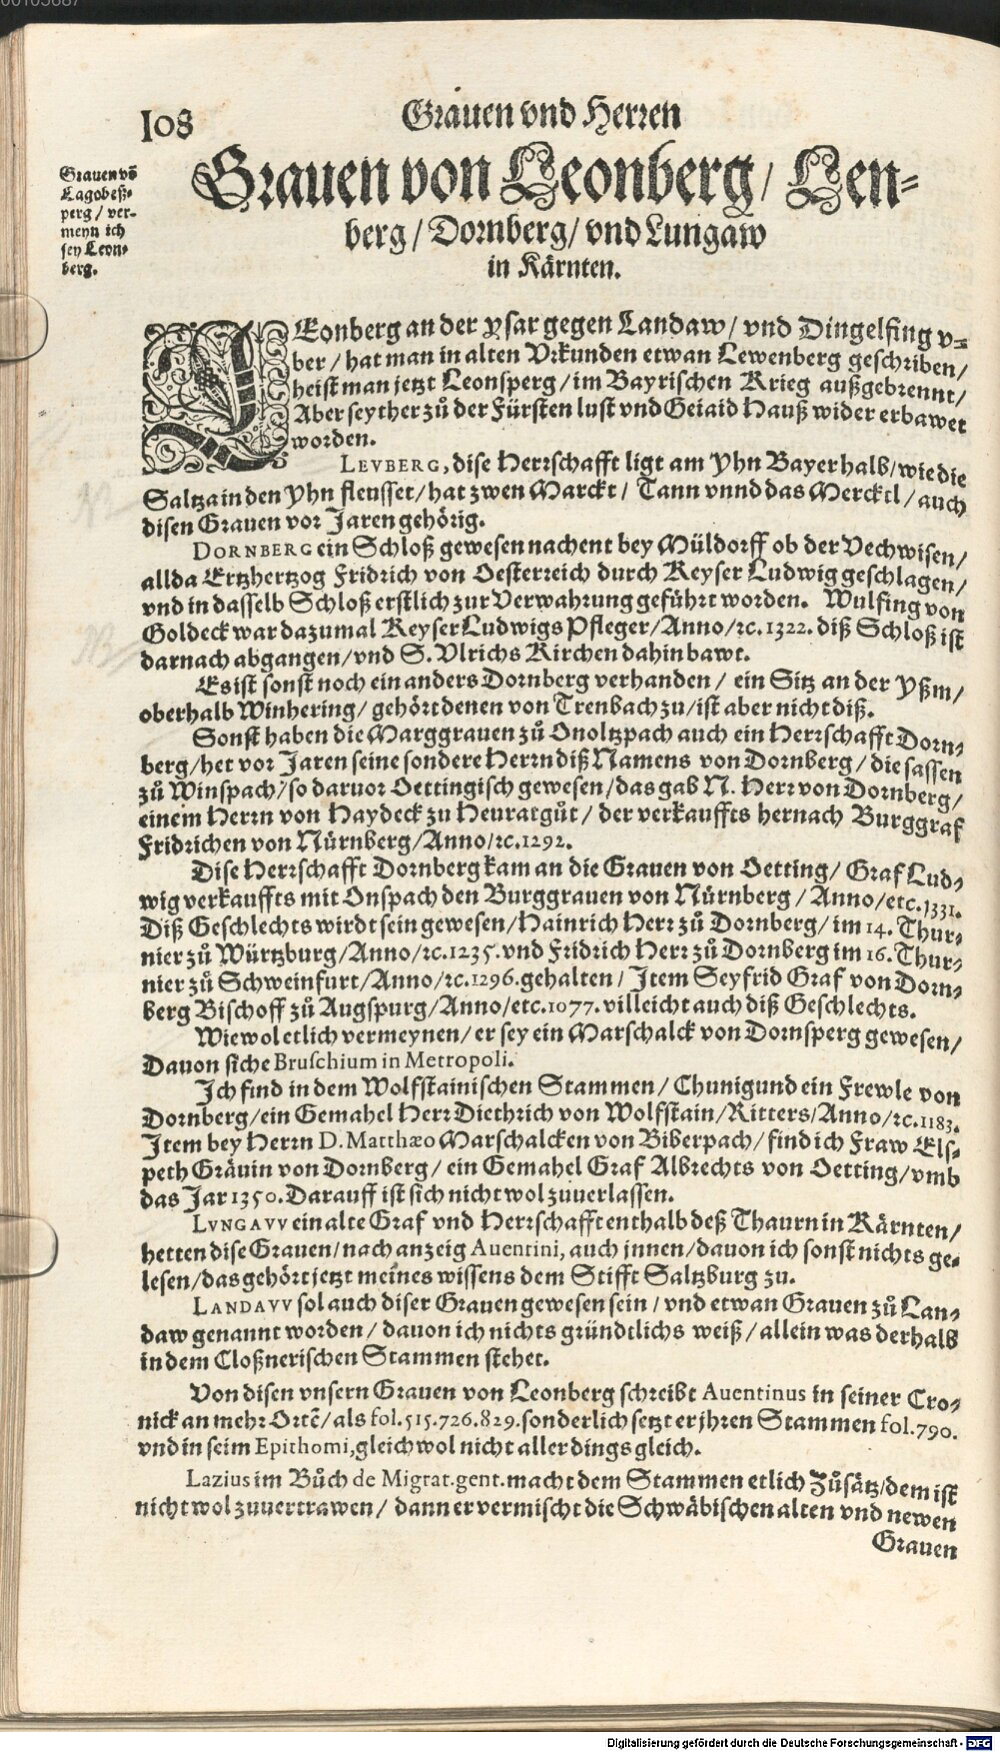 108
Grauen vnd Herren
Grauen vō
Lagobeß-
perg / ver-
meyn ich
sey Leon-
berg.
Grauen von Leonberg / Len-
berg / Dornberg / vnd Lungaw
in Kärnten.
LEonberg an der Ysar gegen Landaw / vnd Dingelfing v-
ber / hat man in alten Vrkunden etwan Lewenberg geschriben /
heist man jetzt Leonsperg / im Bayrischen Krieg außgebrennt /
Aber seyther zů der Fürsten lust vnd Geiaid Hauß wider erbawet
worden.
LEVBERG, dise Herrschafft ligt am Yhn Bayerhalb / wie die
Saltza in den Yhn fleusset / hat zwen Marckt / Tann vnnd das Mercktl / auch
disen Grauen vor Jaren gehörig.
DORNBERG ein Schloß gewesen nachent bey Müldorff ob der Vechwisen /
allda Ertzhertzog Fridrich von Oesterreich durch Keyser Ludwig geschlagen /
vnd in dasselb Schloß erstlich zur Verwahrung geführt worden. Wulfing von
Goldeck war dazumal Keyser Ludwigs Pfleger / Anno / ꝛc. 1322. diß Schloß ist
darnach abgangen / vnd S. Vlrichs Kirchen dahin bawt.
Es ist sonst noch ein anders Dornberg verhanden / ein Sitz an der Yßm /
oberhalb Winhering / gehört denen von Trenbach zu / ist aber nicht diß.
Sonst haben die Marggrauen zů Onoltzpach auch ein Herrschafft Dorn-
berg / het vor Jaren seine sondere Herrn diß Namens von Dornberg / die sassen
zů Winspach / so daruor Oettingisch gewesen / das gab N. Herr von Dornberg /
einem Herrn von Haydeck zu Heuratgůt / der verkauffts hernach Burggraf
Fridrichen von Nürnberg / Anno / ꝛc. 1292.
Dise Herrschafft Dornberg kam an die Grauen von Oetting / Graf Lud-
wig verkauffts mit Onspach den Burggrauen von Nürnberg / Anno / etc. 1331.
Diß Geschlechts wirdt sein gewesen / Hainrich Herr zů Dornberg / im 14. Thur-
nier zů Würtzburg / Anno / ꝛc. 1235. vnd Fridrich Herr zů Dornberg im 16. Thur-
nier zů Schweinfurt / Anno / ꝛc. 1296. gehalten / Item Seyfrid Graf von Dorn-
berg Bischoff zů Augspurg / Anno / etc. 1077. villeicht auch diß Geschlechts.
Wiewol etlich vermeynen / er sey ein Marschalck von Dornsperg gewesen /
Dauon siche Bruschium in Metropoli.
Ich find in dem Wolfstainischen Stammen / Chunigund ein Frewle von
Dornberg / ein Gemahel Herr Diethrich von Wolfstain / Ritters / Anno / ꝛc. 1183.
Item bey Herrn D. Matthæo Marschalcken von Biberpach / find ich Fraw Els-
peth Gräuin von Dornberg / ein Gemahel Graf Albrechts von Oetting / vmb
das Jar 1350. Darauff ist sich nicht wol zuuerlassen.
LVNGAVV ein alte Graf vnd Herrschafft enthalb deß Thaurn in Kärnten /
hetten dise Grauen / nach anzeig Auentini, auch jnnen / dauon ich sonst nichts ge-
lesen / das gehört jetzt meines wissens dem Stifft Saltzburg zu.
LANDAVV sol auch diser Grauen gewesen sein / vnd etwan Grauen zů Lan-
daw genannt worden / dauon ich nichts gründtlichs weiß / allein was derhalb
in dem Cloßnerischen Stammen stehet.
Von disen vnsern Grauen von Leonberg schreibt Auentinus in seiner Cro-
nick an mehr Ortē / als fol. 515. 726. 829. sonderlich setzt er jhren Stammen fol. 790.
vnd in seim Epithomi, gleichwol nicht allerdings gleich.
Lazius im Bůch de Migrat. gent. macht dem Stammen etlich Zůsätz / dem ist
nicht wol zuuertrawen / dann er vermischt die Schwäbischen alten vnd newen
Grauen
Digitalisierung gefördert durch die Deutsche Forschungsgemeinschaft - DFG